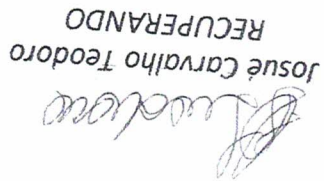 Josué Carvalho Teodoro
RECUPERANDO